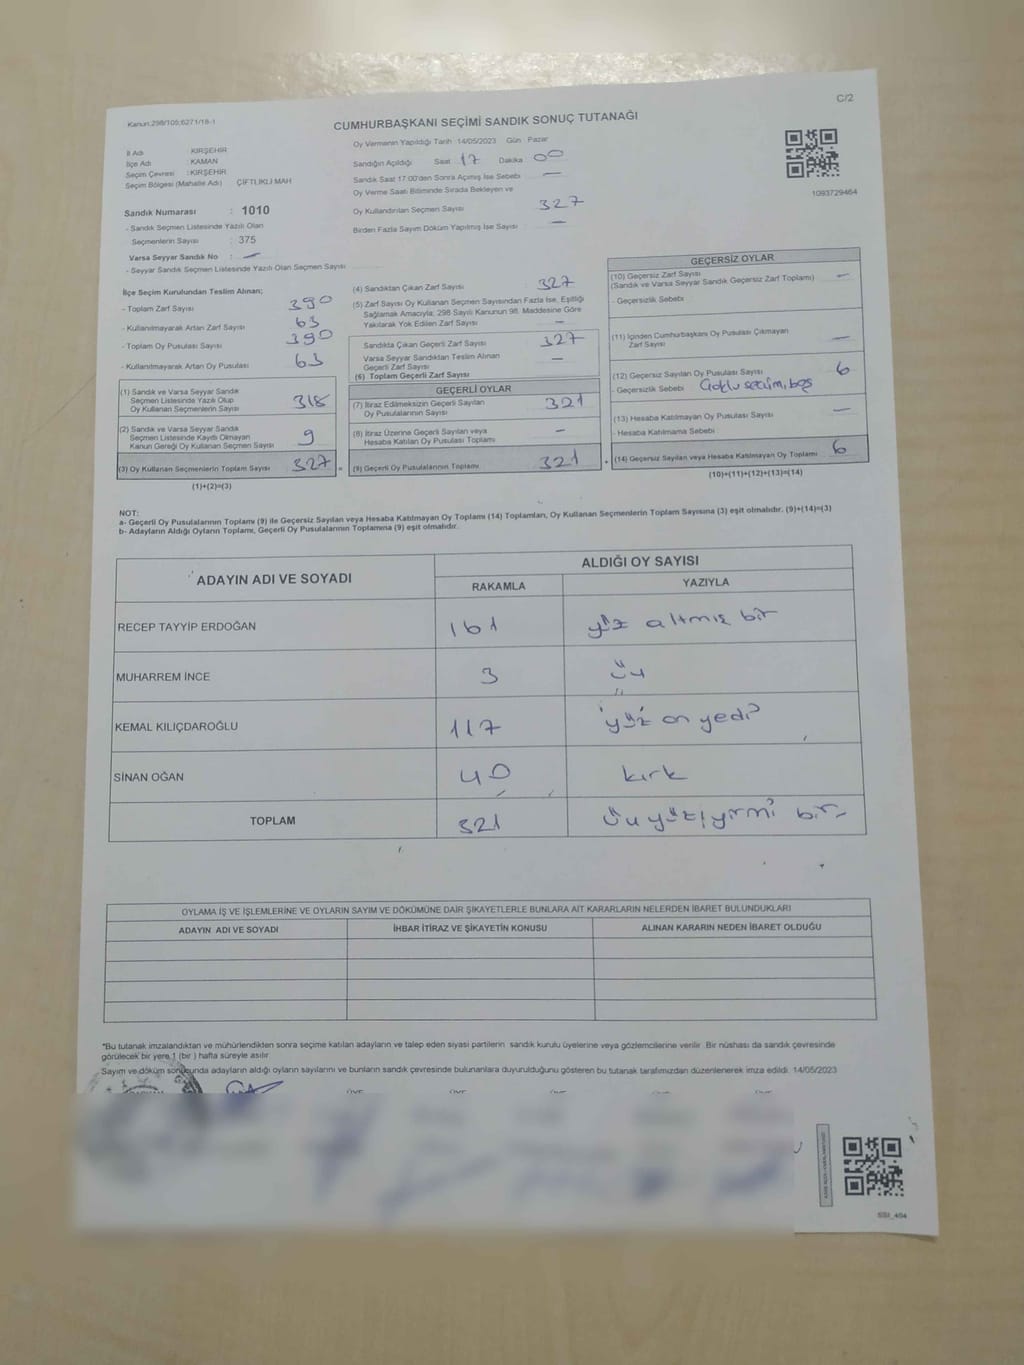 C/2
Kanun:298/105;6271/18-1
CUMHURBAŞKANI SEÇİMİ SANDIK SONUÇ TUTANAĞI
İl Adı : KIRŞEHİR
İlçe Adı : KAMAN
Seçim Çevresi : KIRŞEHİR
Seçim Bölgesi (Mahalle Adı) ÇİFTLİKLİ MAH
Sandık Numarası : 1010
- Sandık Seçmen Listesinde Yazılı Olan
Seçmenlerin Sayısı : 375
Varsa Seyyar Sandık No : -
- Seyyar Sandık Seçmen Listesinde Yazılı Olan Seçmen Sayısı
Oy Vermenin Yapıldığı Tarih 14/05/2023 Gün Pazar
Sandığın Açıldığı Saat 17 Dakika 00
Sandık Saat 17:00'den Sonra Açımış İse Sebebi -
Oy Verme Saati Bitiminde Sırada Bekleyen ve
Oy Kullandırılan Seçmen Sayısı 327
Birden Fazla Sayım Döküm Yapılmış İse Sayısı : -
1093729464
İlçe Seçim Kurulundan Teslim Alınan;
- Toplam Zarf Sayısı 390
- Kullanılmayarak Artan Zarf Sayısı 63
- Toplam Oy Pusulası Sayısı 390
- Kullanılmayarak Artan Oy Pusulası 63
(1) Sandık ve Varsa Seyyar Sandık
Seçmen Listesinde Yazılı Olup
Oy Kullanan Seçmenlerin Sayısı 318
(2) Sandık ve Varsa Seyyar Sandık
Seçmen Listesinde Kayıtlı Olmayan
Kanun Gereği Oy Kullanan Seçmen Sayısı 9
(3) Oy Kullanan Seçmenlerin Toplam Sayısı 327 =
(1)+(2)=(3)
(4) Sandıktan Çıkan Zarf Sayısı 327
(5) Zarf Sayısı Oy Kullanan Seçmen Sayısından Fazla İse, Eşitliği
Sağlamak Amacıyla; 298 Sayılı Kanunun 98. Maddesine Göre
Yakılarak Yok Edilen Zarf Sayısı -
Sandıkta Çıkan Geçerli Zarf Sayısı 327
Varsa Seyyar Sandıktan Teslim Alınan
Geçerli Zarf Sayısı -
(6) Toplam Geçerli Zarf Sayısı
GEÇERLİ OYLAR
(7) İtiraz Edilmeksizin Geçerli Sayılan
Oy Pusulalarının Sayısı 321
(8) İtiraz Üzerine Geçerli Sayılan veya
Hesaba Katılan Oy Pusulası Toplamı -
(9) Geçerli Oy Pusulalarının Toplamı 321 +
GEÇERSİZ OYLAR
(10) Geçersiz Zarf Sayısı
(Sandık ve Varsa Seyyar Sandık Geçersiz Zarf Toplamı) -
- Geçersizlik Sebebi
(11) İçinden Cumhurbaşkanı Oy Pusulası Çıkmayan
Zarf Sayısı -
(12) Geçersiz Sayılan Oy Pusulası Sayısı 6
- Geçersizlik Sebebi Çoklu seçim, boş
(13) Hesaba Katılmayan Oy Pusulası Sayısı -
- Hesaba Katılmama Sebebi
(14) Geçersiz Sayılan veya Hesaba Katılmayan Oy Toplamı 6
(10)+(11)+(12)+(13)=(14)
NOT:
a- Geçerli Oy Pusulalarının Toplamı (9) ile Geçersiz Sayılan veya Hesaba Katılmayan Oy Toplamı (14) Toplamları, Oy Kullanan Seçmenlerin Toplam Sayısına (3) eşit olmalıdır. (9)+(14)=(3)
b- Adayların Aldığı Oyların Toplamı, Geçerli Oy Pusulalarının Toplamına (9) eşit olmalıdır.
ADAYIN ADI VE SOYADI ALDIĞI OY SAYISI
RAKAMLA YAZIYLA
RECEP TAYYİP ERDOĞAN 161 yüz altmış bir
MUHARREM İNCE 3 üç
KEMAL KILIÇDAROĞLU 117 yüz on yedi
SİNAN OĞAN 40 kırk
TOPLAM 321 üç yüz yirmi bir
OYLAMA İŞ VE İŞLEMLERİNE VE OYLARIN SAYIM VE DÖKÜMÜNE DAİR ŞİKAYETLERLE BUNLARA AİT KARARLARIN NELERDEN İBARET BULUNDUKLARI
ADAYIN ADI VE SOYADI İHBAR İTİRAZ VE ŞİKAYETİN KONUSU ALINAN KARARIN NEDEN İBARET OLDUĞU
*Bu tutanak imzalandıktan ve mühürlendikten sonra seçime katılan adayların ve talep eden siyasi partilerin sandık kurulu üyelerine veya gözlemcilerine verilir. Bir nüshası da sandık çevresinde
görülecek bir yere 1 (bir ) hafta süreyle asılır.
Sayım ve döküm sonucunda adayların aldığı oyların sayılarını ve bunların sandık çevresinde bulunanlara duyurulduğunu gösteren bu tutanak tarafımızdan düzenlenerek imza edildi. 14/05/2023
SSI_404